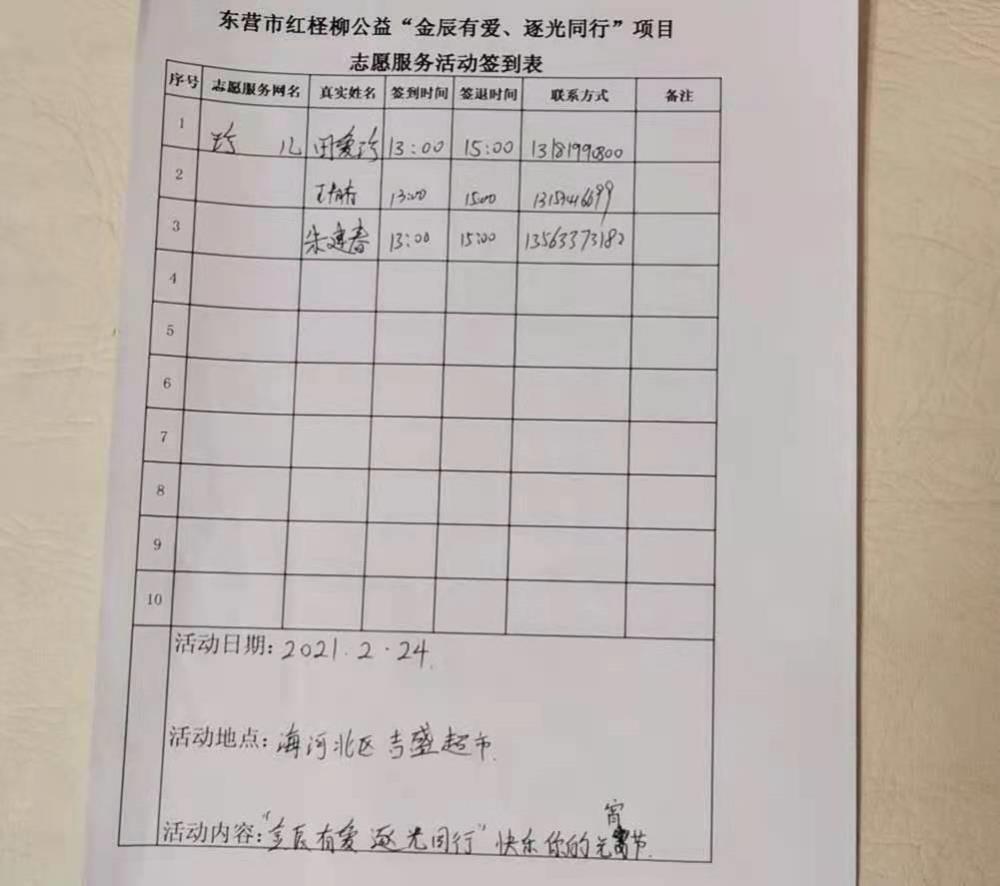 东营市红柽柳公益“金辰有爱、逐光同行”项目
志愿服务活动签到表
序号 志愿服务网名 真实姓名 签到时间 签退时间 联系方式 备注
1 珍儿 田爱珍 13:00 15:00 13181990800
2 13:00 15:00
3 朱建春 13:00 15:00 13563373182
4
5
6
7
8
9
10
活动日期：2021.2.24.
活动地点：海河北区吉盛超市.
活动内容：“金辰有爱 逐光同行”快乐你的元宵节.